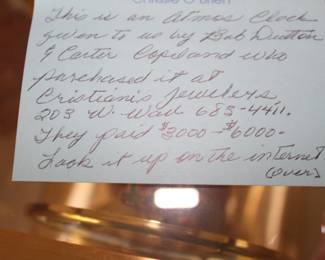 Christie O'Brien
This is an Atmos Clock
given to us by Bob Dutton
& Carter Copeland who
purchased it at
Cristianis Jewelers
203 W. Wad 683-4411.
They paid $3000-$6000-
Look it up on the internet
(over)